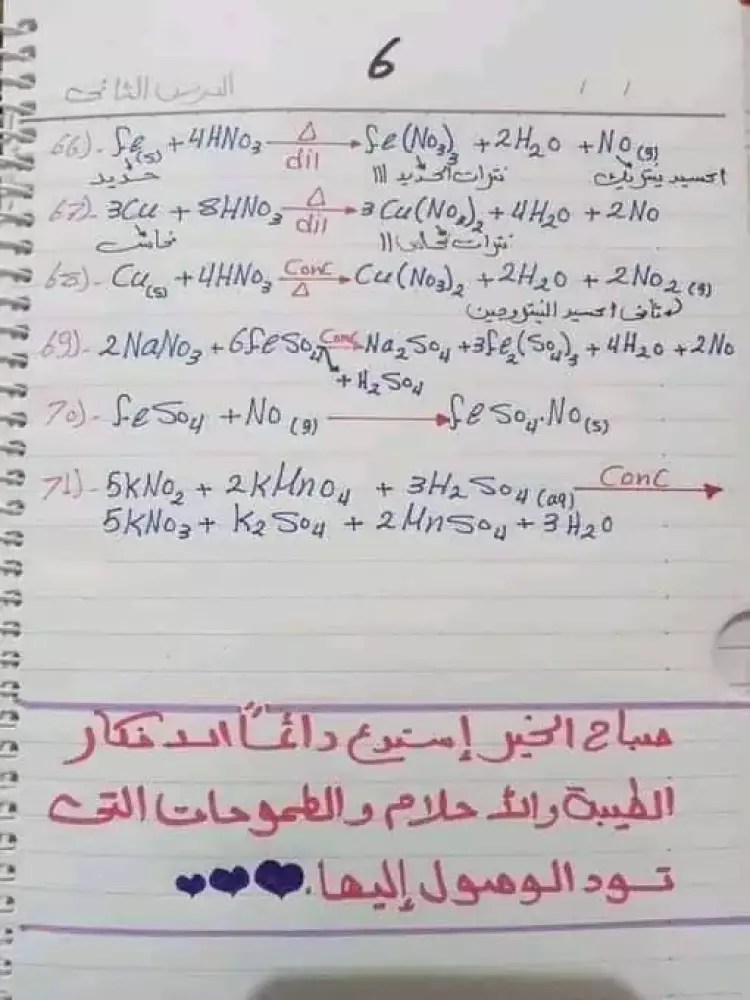 6
الدرس الثانى / /
66)- Fe(s) + 4HNO3 —Δ dil→ Fe(NO3)3 + 2H2O + NO(g)
حديد نترات الحديد III اكسيد نيتريك
67)- 3Cu + 8HNO3 —Δ dil→ 3Cu(NO3)2 + 4H2O + 2NO
نحاس نترات نحاس II
68)- Cu(s) + 4HNO3 —Conc Δ→ Cu(NO3)2 + 2H2O + 2NO2(g)
ثانى اكسيد النيتروجين
69)- 2NaNO3 + 6FeSO4 —Conc→ Na2SO4 + 3Fe2(SO4)3 + 4H2O + 2NO
+ H2SO4
70)- FeSO4 + NO(g) → FeSO4.NO(s)
71)- 5KNO2 + 2KMnO4 + 3H2SO4(aq) —Conc→
5KNO3 + K2SO4 + 2MnSO4 + 3H2O
صباح الخير إسترجع دائماً الافكار
الطيبة والأحلام والطموحات التى
تود الوصول إليها.